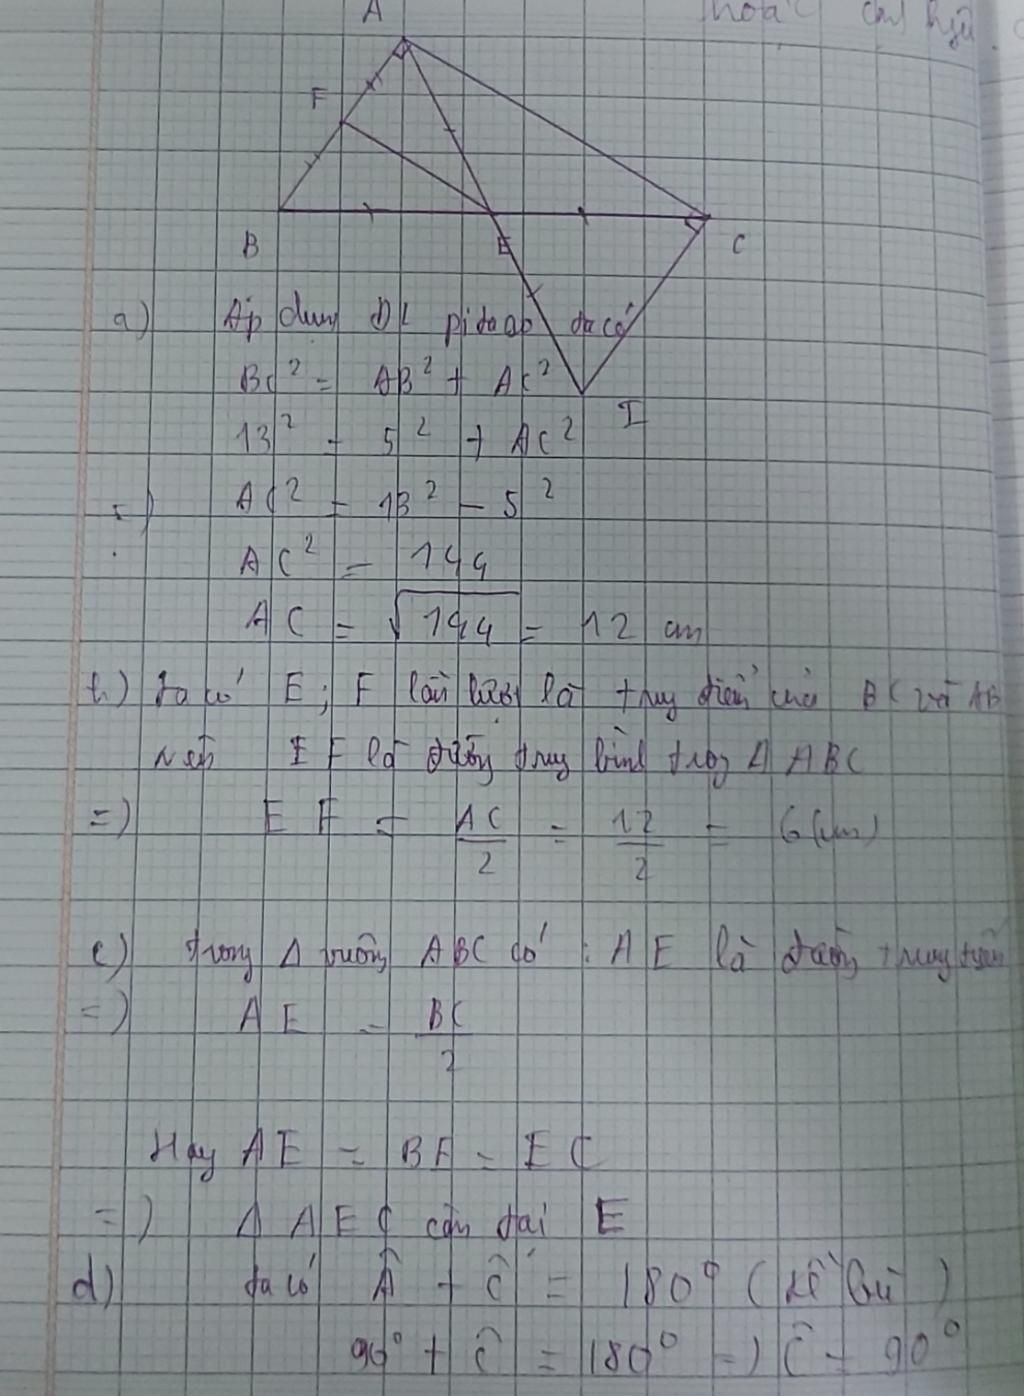 A
F
B
E
C
I
a) Áp dụng ĐL pitago ta có
BC² = AB² + AC²
13² = 5² + AC²
=) AC² = 13² - 5²
AC² = 144
AC = √144 = 12 cm
b) ta có E; F lần lượt là trung điểm của BC và AB
Nên EF là đường trung bình trong Δ ABC
=) EF = AC/2 = 12/2 = 6 (cm)
c) trong Δ vuông ABC có : AE là đường trung tuyến
=) AE = BC/2
Hay AE = BE = EC
=) Δ AEC cân tại E
d) ta có Â + Ĉ = 180° (kề bù)
90° + Ĉ = 180° =) Ĉ = 90°